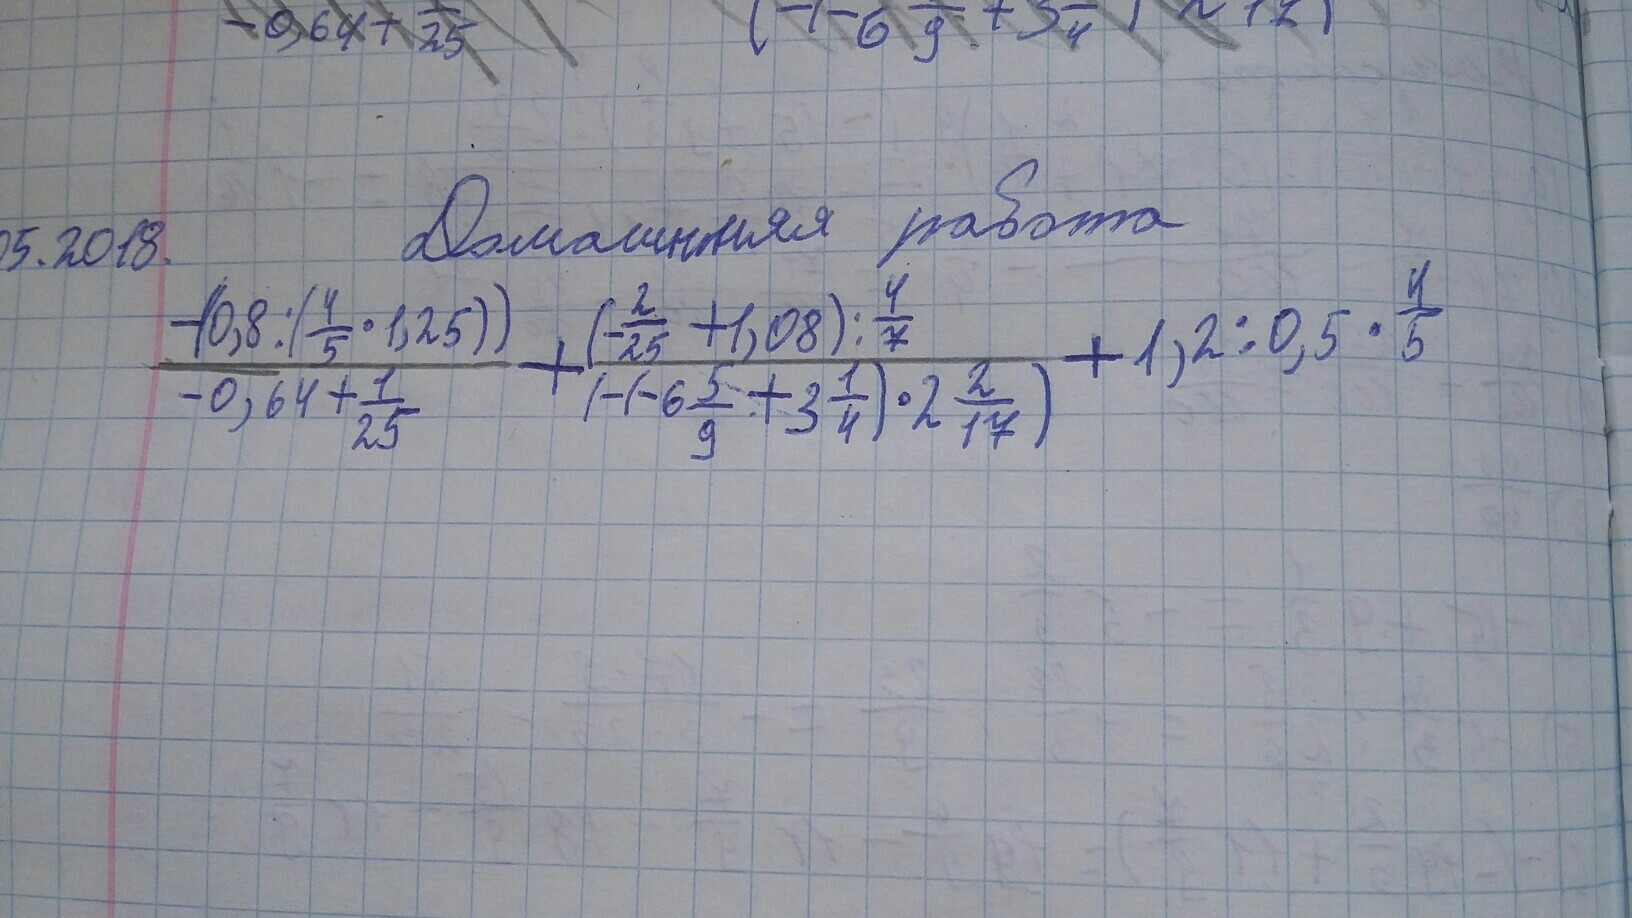 -0,64+ 1/25 (-(-6 5/9 +3 1/4)
05.2018. Домашняя работа
-(0,8:(4/5 · 1,25)) / (-0,64+1/25) + (-2/25 +1,08):4/7 / (-(-6 5/9 +3 1/4)·2 2/17) + 1,2:0,5·4/5